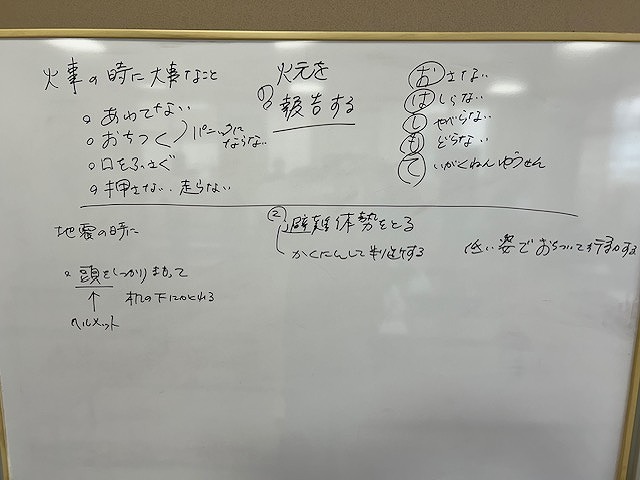 火事の時に大事なこと
○ あわてない
○ おちつく
パニックにならない
○ 口をふさぐ
○ 押さない 走らない
火元を
① 報告する
おさない
はしらない
しゃべらない
もどらない
ていがくねんゆうせん
地震の時に
○ 頭をしっかりまもって
机の下にかくれる
↑
ヘルメット
② 避難体勢をとる
かくにんして判断する
低い姿でおちついて行動する